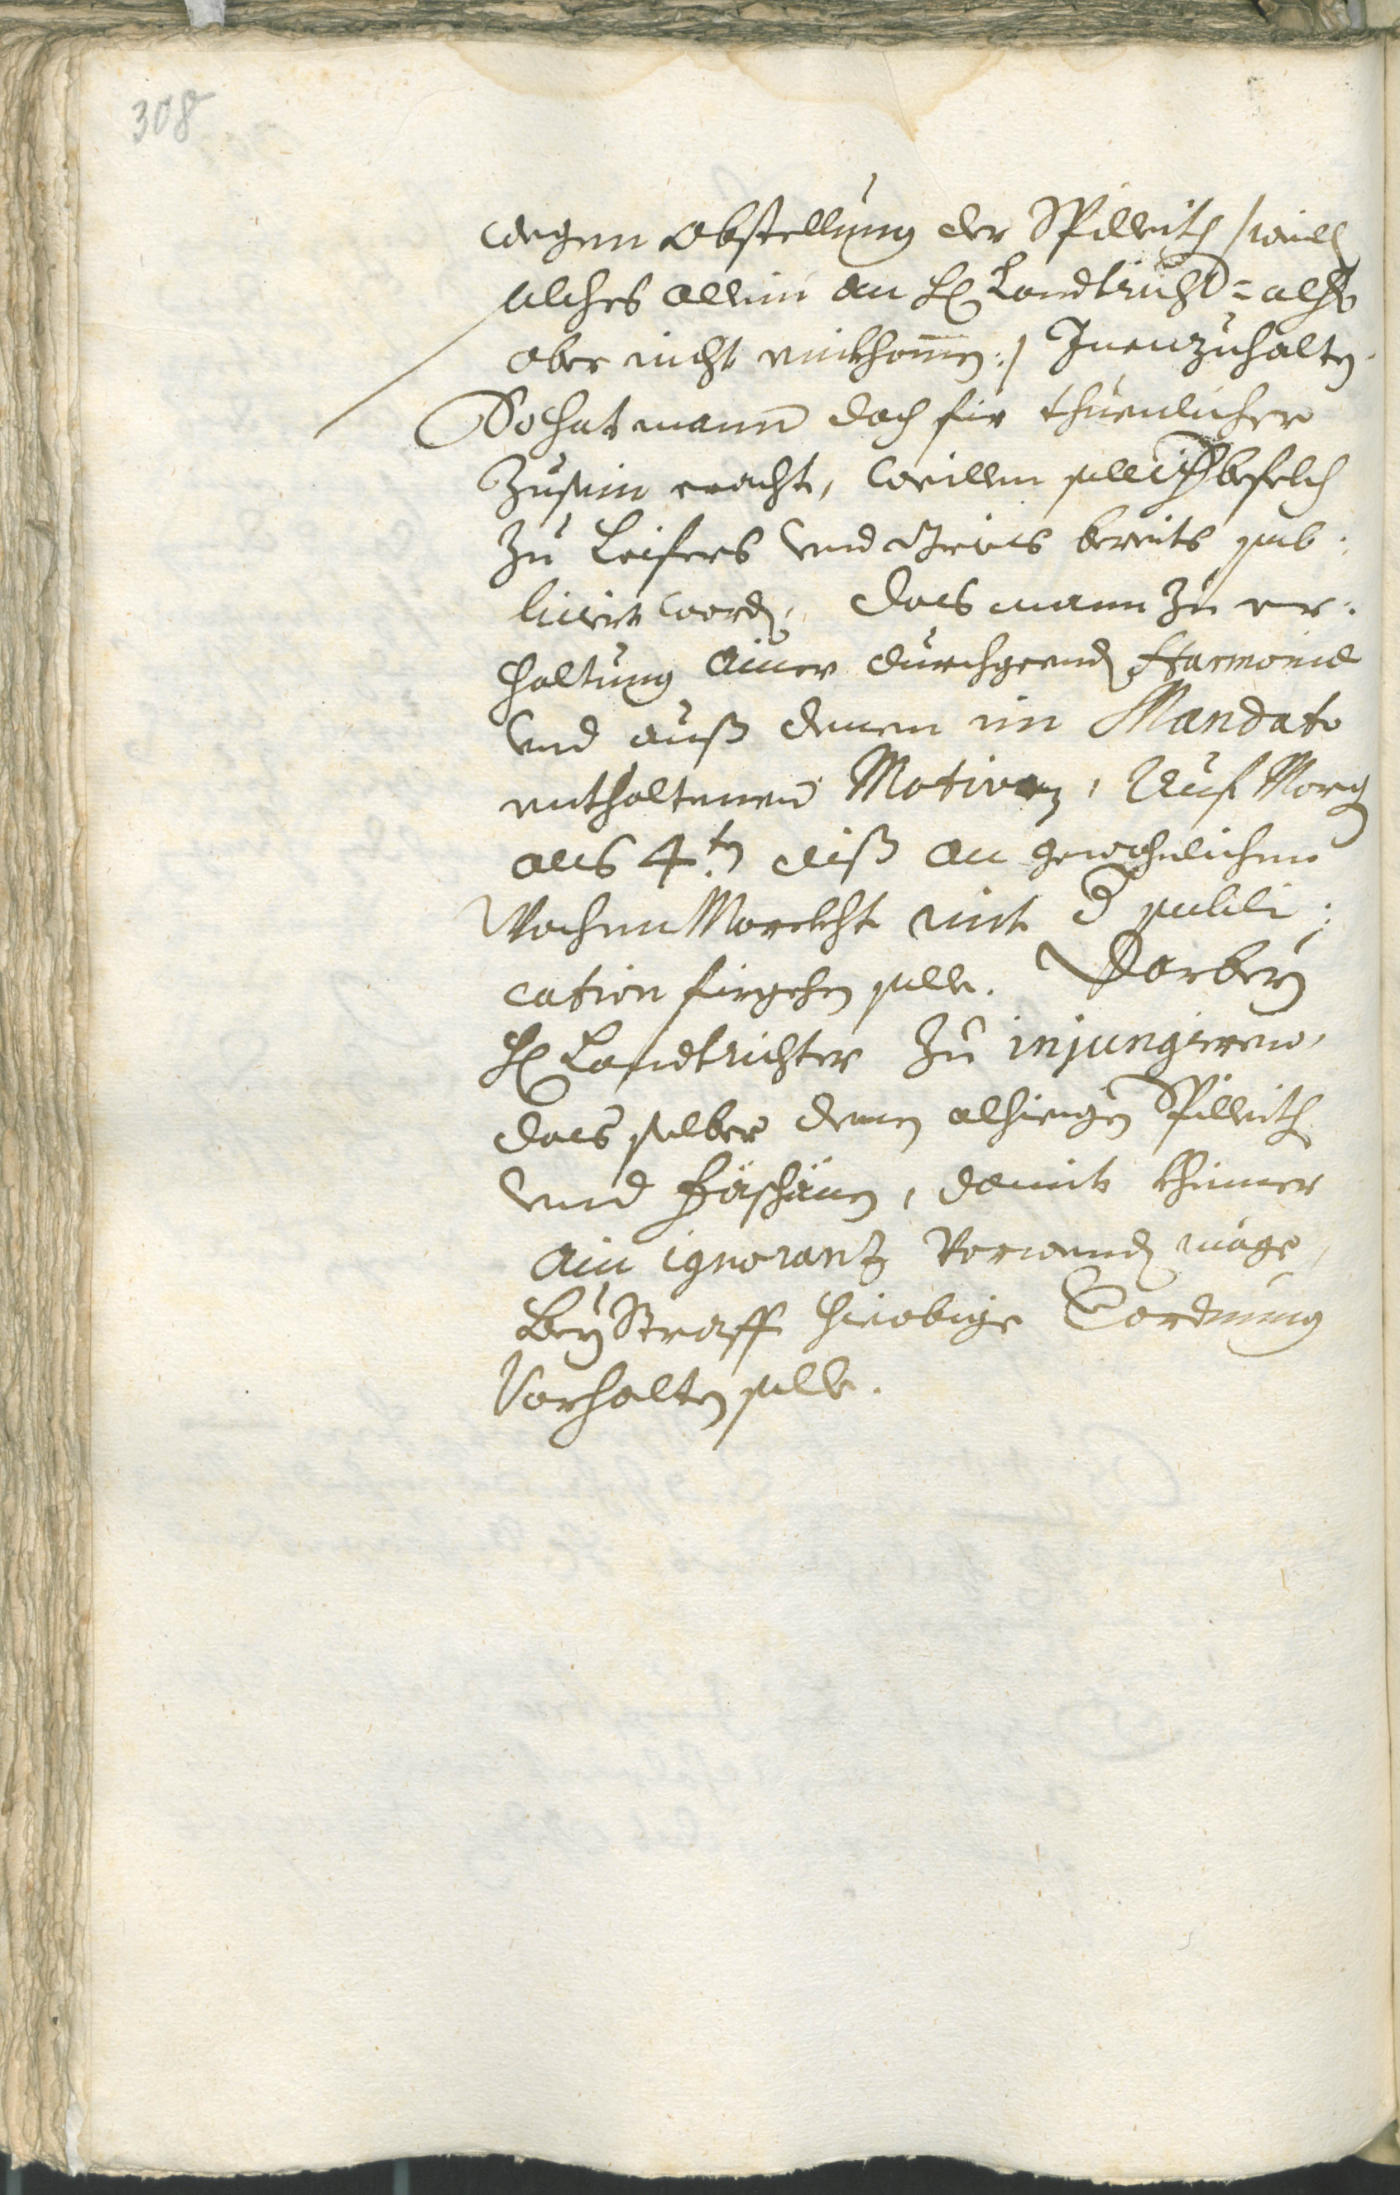 308
wegen Abstellung der Spilleith /weill
solches allein an H Landtricht= alhero
aber nicht einkhomen:/ Inenzuhalten.
So hat mann doch für thuenlicher
zusein eracht, weillen solcher befelch
zu Leifers und Gries bereits pub:
licirt word, das mann zu er:
haltung ainer durchgeend Harmonie
und auß denen im Mandato
enthaltenen Motiven, auf Morg
als 4.ten diß an gewohnlichen
WochenMarckht mit d publi:
cation fürgehen solle. Darbey
H Landtrichter zu injungieren,
das selber denen alhiegen Spilleith
und, damit khainer
ain ignorantz vorwend möge,
bey Straff hieobige Verordnung
vorhalten solle.